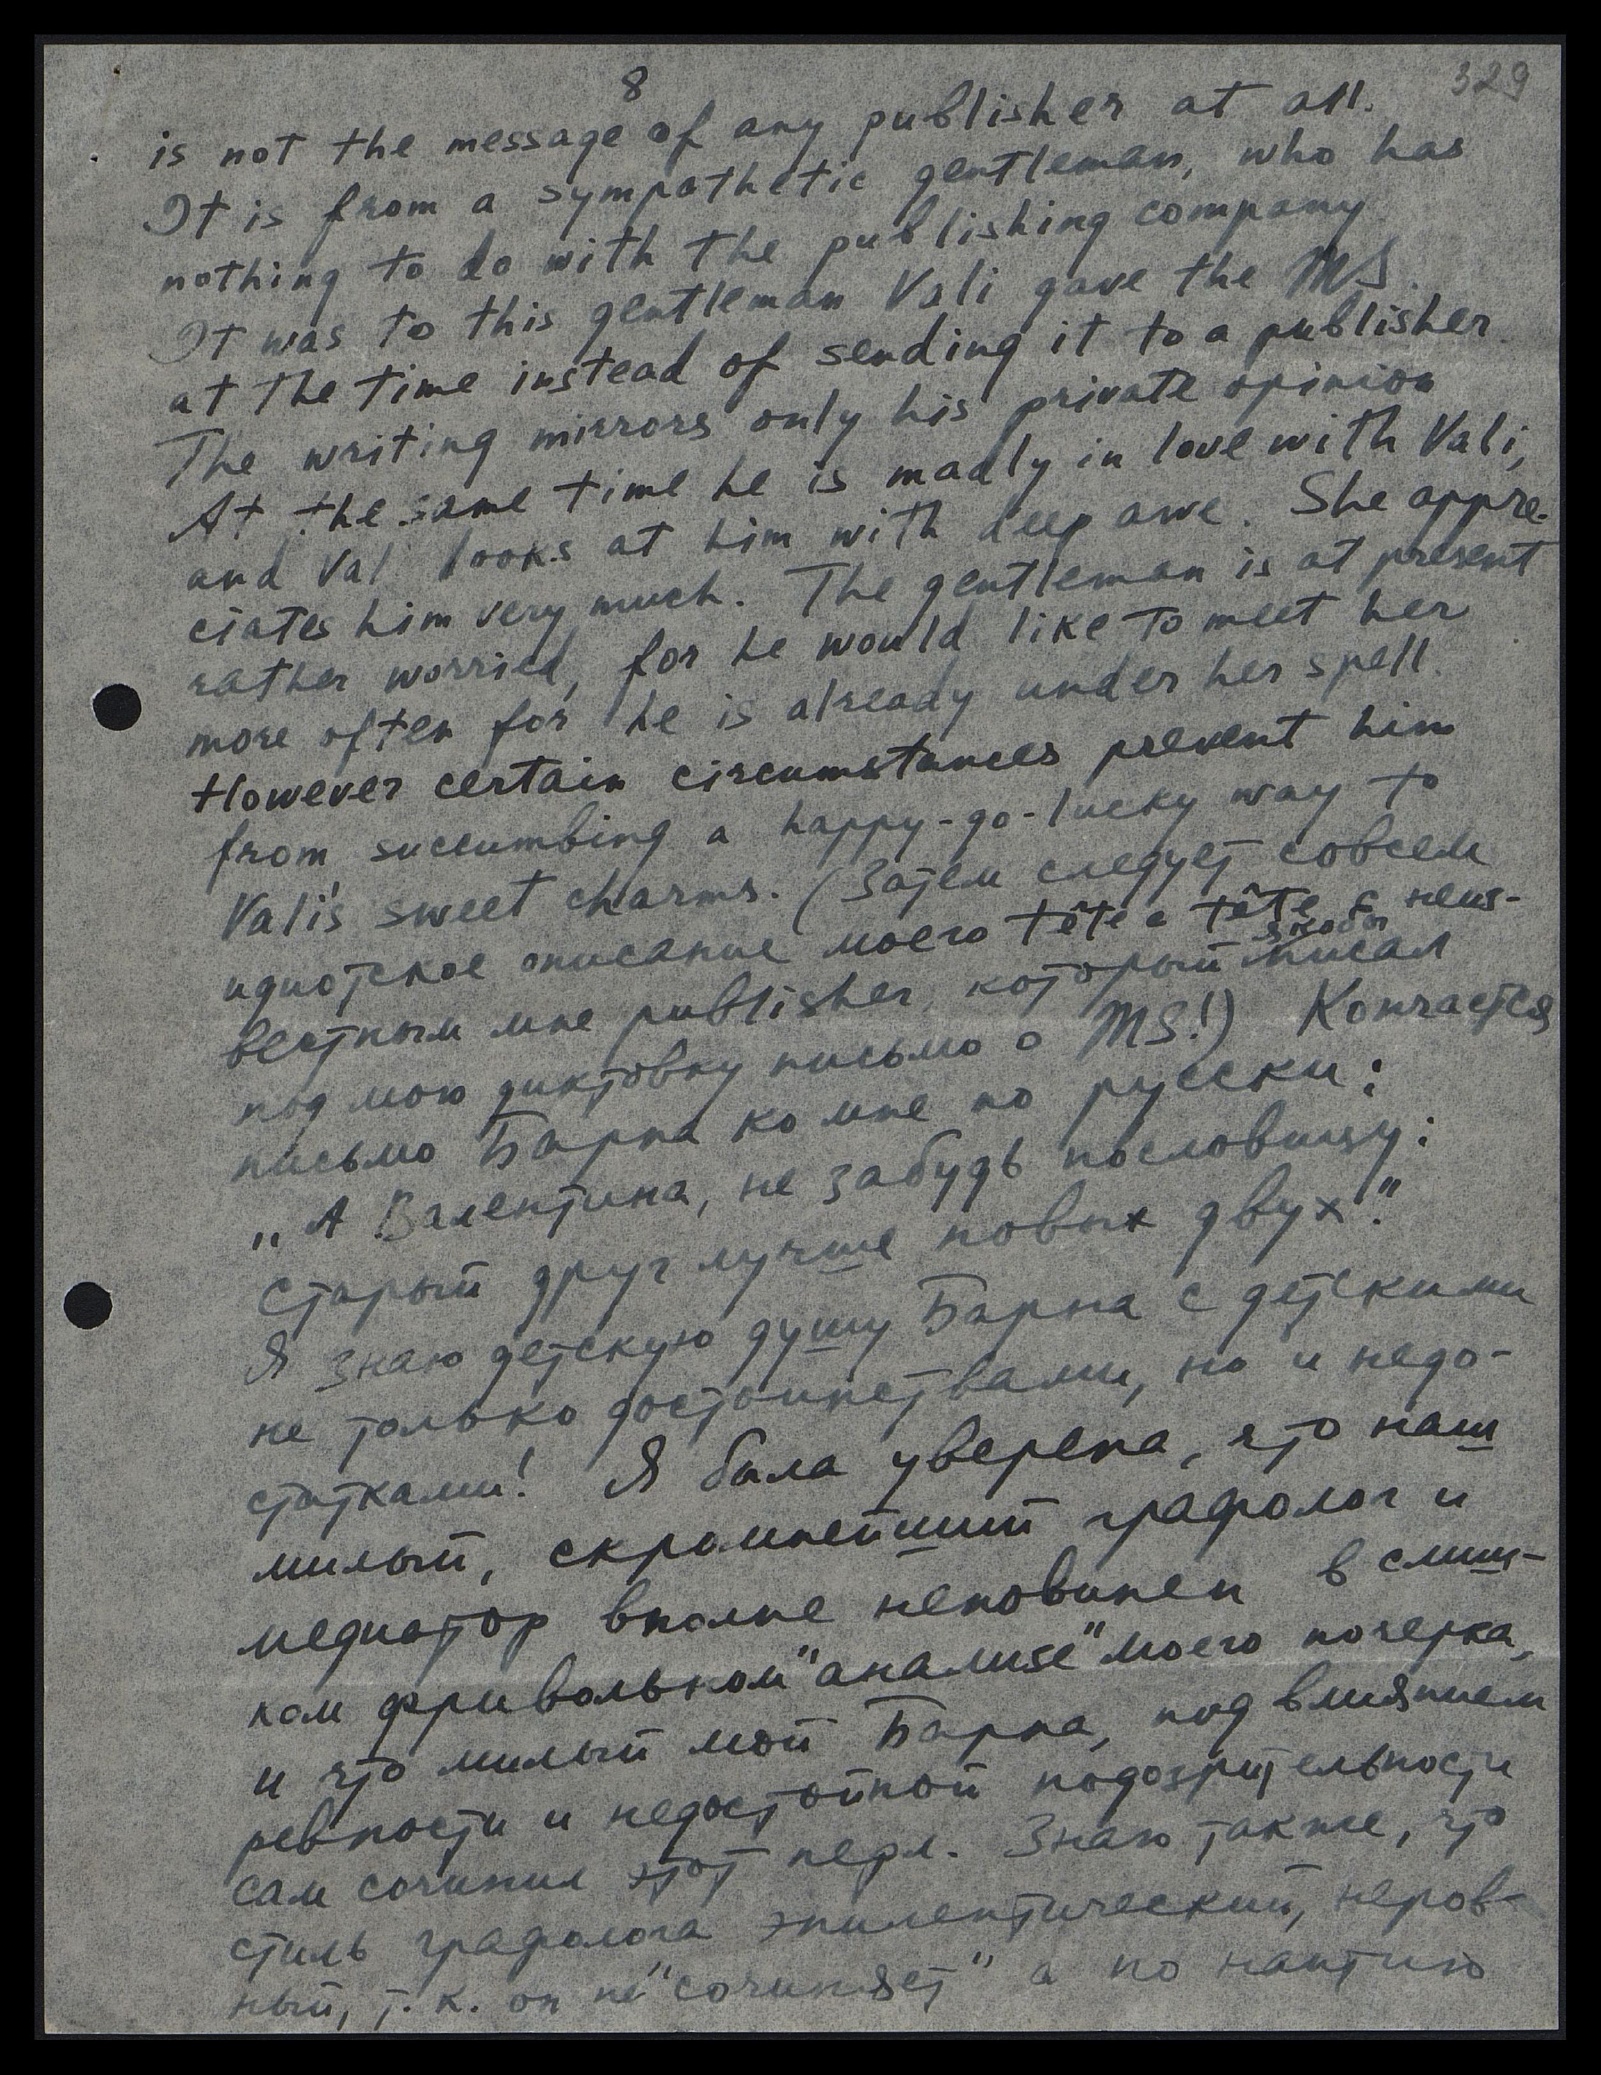 8
329
is not the message of any publisher at all.
It is from a sympathetic gentleman, who has
nothing to do with the publishing company
It was to this gentleman Vali gave the MS.
at the time instead of sending it to a publisher.
The writing mirrors only his private opinion
At the same time he is madly in love with Vali,
and Val looks at him with deep awe. She appre-
ciates him very much. The gentleman is at present
rather worried, for he would like to meet her
more often for he is already under her spell.
However certain circumstances prevent him
from succumbing a happy-go-lucky way to
Vali's sweet charms. (Затем следует совсем
идиотское описание моего tête a tête с неиз-
вестным мне publisher, который якобы писал
под мою диктовку письмо о MS!) Кончается
письмо Барна ко мне по русски:
„А Валентина, не забудь пословицу:
старый друг лучше новых двух".
Я знаю детскую душу Барна с детскими
не только достоинствами, но и недо-
статками! Я была уверена, что наш
милый, скромнейший графолог и
медиатор вполне неповинен в слиш-
ком фривольном "анализе" моего почерка,
и что милый мой Барна, под влиянием
ревности и недостойной подозрительности
сам сочинил этот перл. Знаю также, что
стиль графолога эпилептический, неров-
ный, т. к. он не "сочиняет" а по наитию